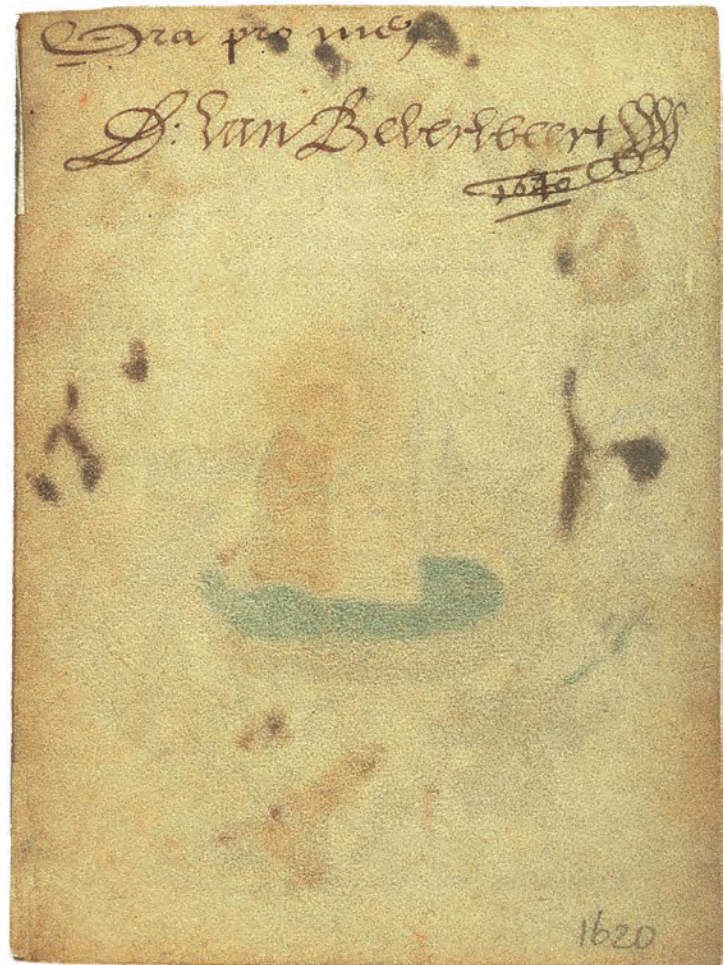 Ora pro me
D: van Beverweert
1620
1620